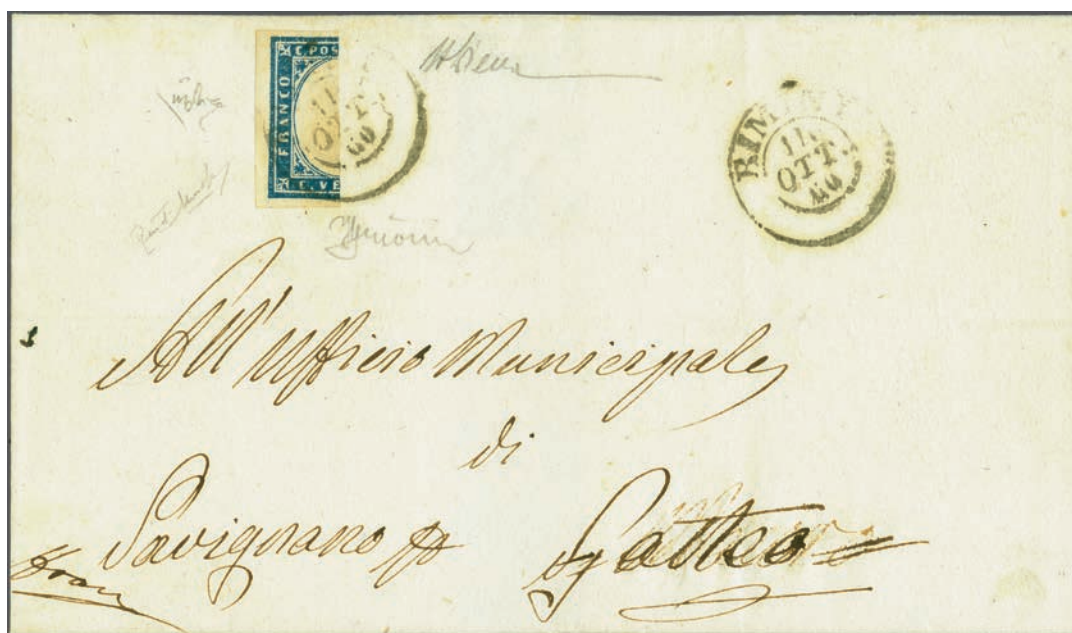 C. POS
FRANCO
C. VE
11
OTT.
60
RIMINI
11.
OTT.
60
All'Uffficio Municipale
di
Savignano Gatteo